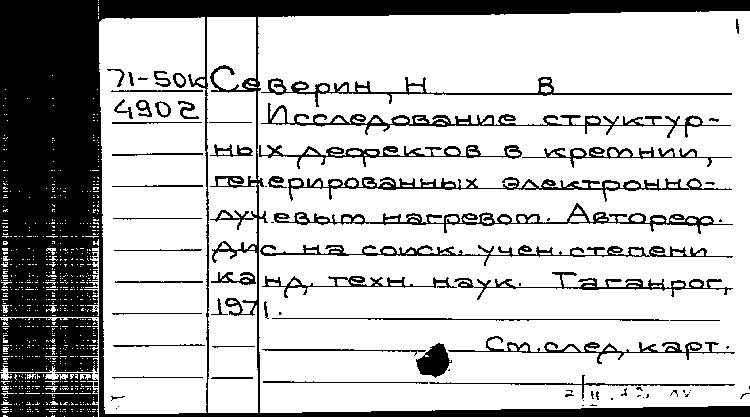 1
71-50к Северин, Н В
490г Исследование структур-
ных дефектов в кремнии,
генерированных электронно-
лучевым нагревом. Автореф.
дис. на соиск. учен. степени
канд. техн. наук. Таганрог,
1971.
См. след. карт.